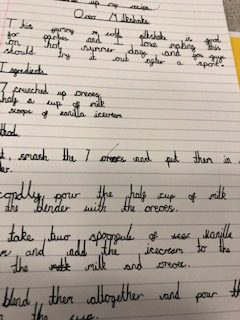 up my recipe
Oreo Milkshake
This yummy cold milkshake is good
for parties and I love making this
on hot summer day and you guys
should try it out after a sport.
Ingredients
7 crunched up oreos
half a cup of milk
scoops of vanilla icecream
thod
t, smash the 7 oreos and put them in a
der.
condly pour the half cup of milk
the blender with the oreos.
take two spoonfuls of vanilla
m and add the icecream to the
the milk and oreos.
blend them alltogether and pour th
the cup.